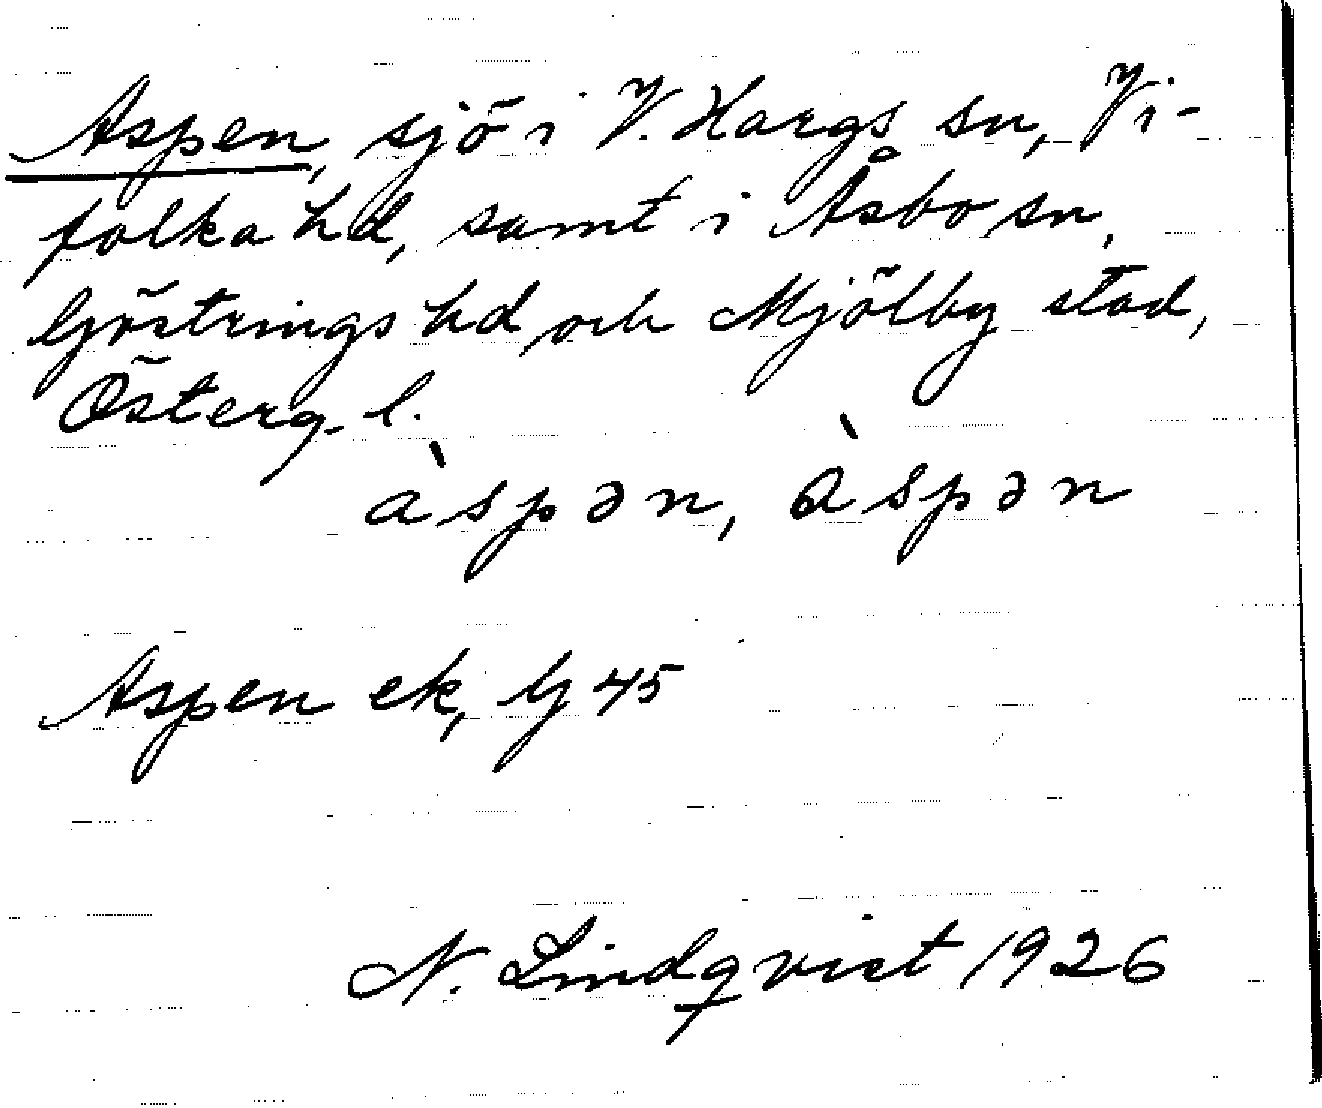 Aspen, sjö i V. Hargs sn, Vi-
folka hd, samt i Åsbo sn,
Göstrings hd och Mjölby stad,
Österg. l.
àspən, àspən
Aspen ek, bj 45
N. Lindqvist 1926